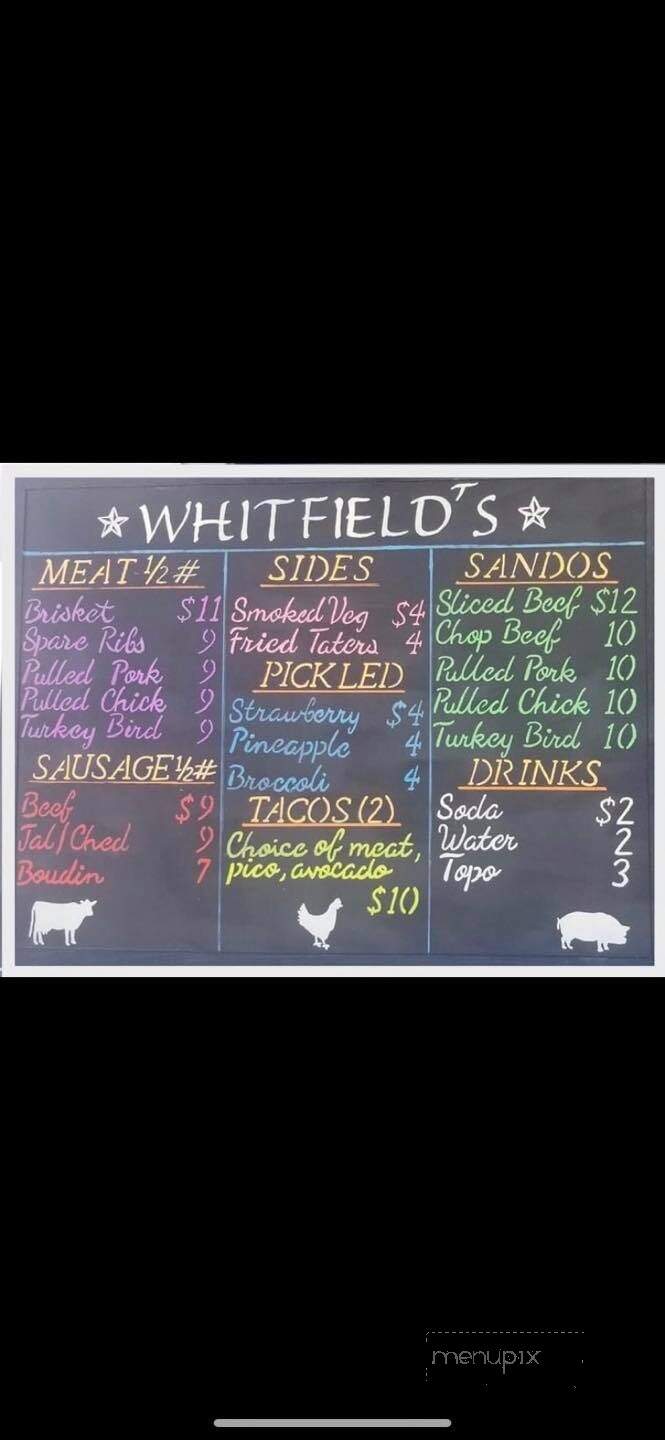 WHITFIELD'S
MEAT ½#
Brisket $11
Spare Ribs 9
Pulled Pork 9
Pulled Chick 9
Turkey Bird 9
SAUSAGE ½#
Beef $9
Jal/Ched 9
Boudin 7
SIDES
Smoked Veg $4
Fried Taters 4
PICKLED
Strawberry $4
Pineapple 4
Broccoli 4
TACOS (2)
Choice of meat,
pico, avocado
$10
SANDOS
Sliced Beef $12
Chop Beef 10
Pulled Pork 10
Pulled Chick 10
Turkey Bird 10
DRINKS
Soda $2
Water 2
Topo 3
menupix